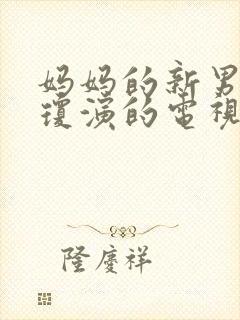 妈妈的新男
瓊演的電視
隆慶祥